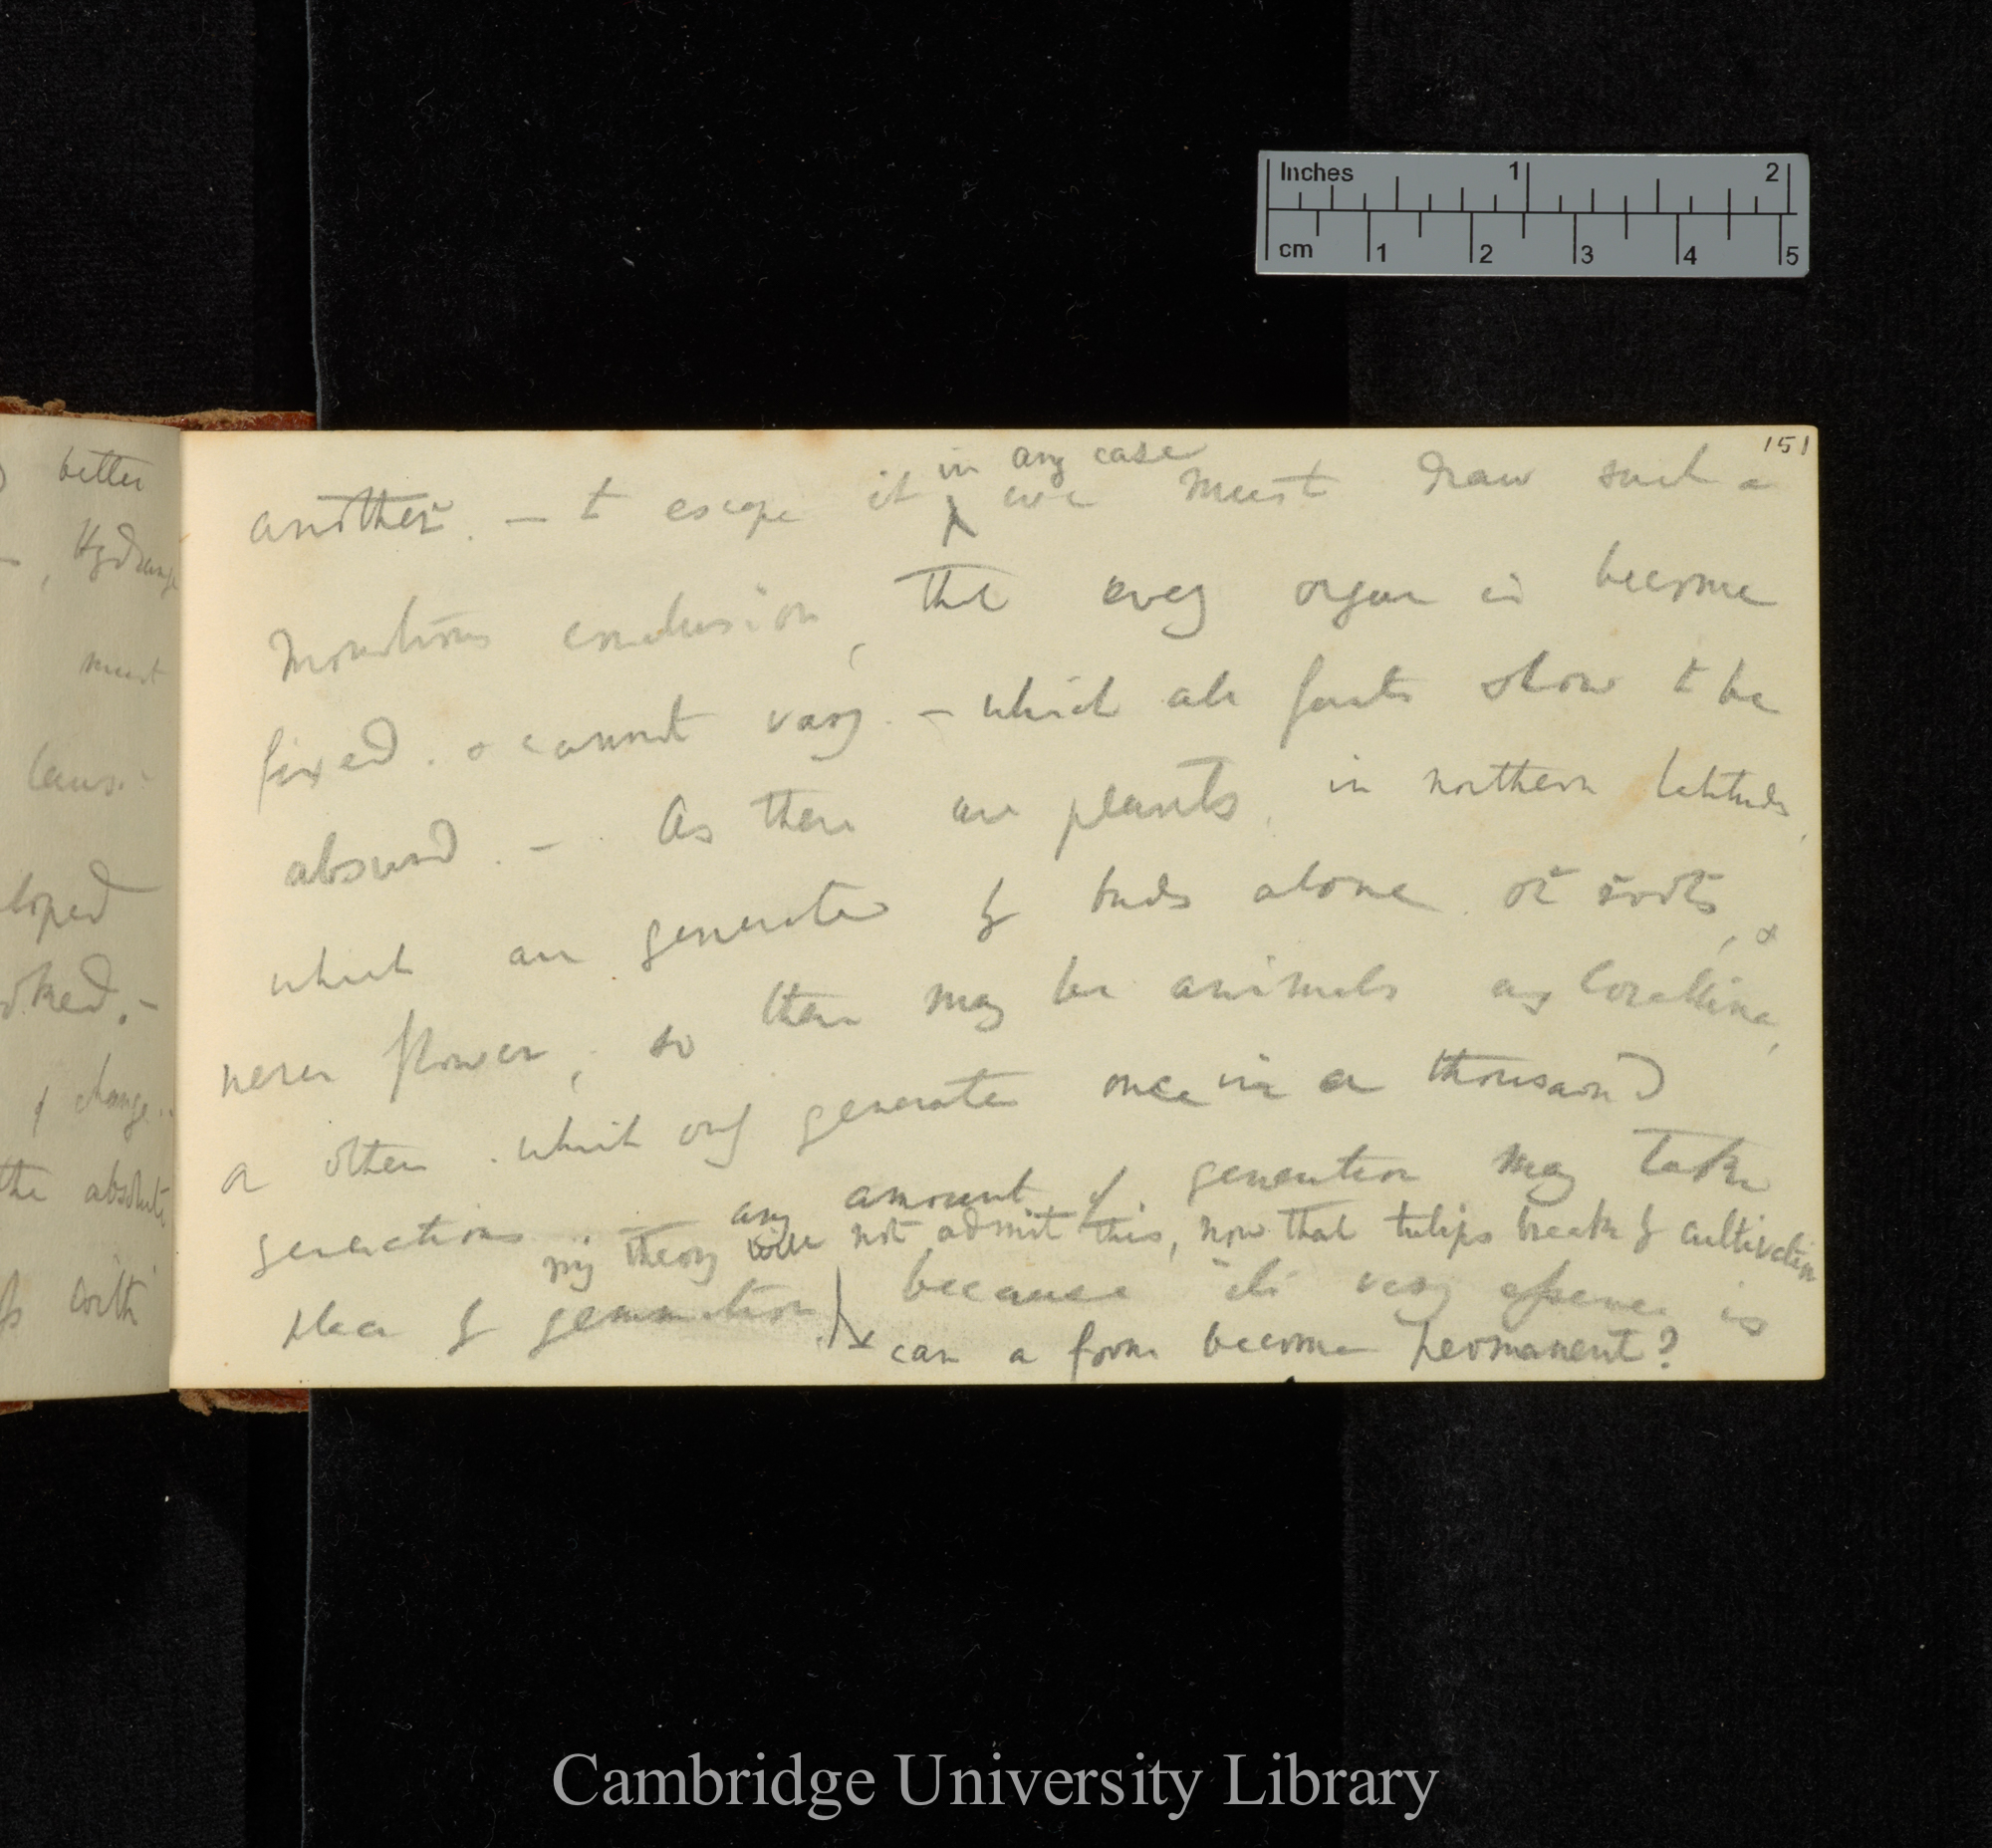 Inches 1 2
cm 1 2 3 4 5
better
Hydrange
must
Caus.-
loped
oked.-
of change..
the absolute
with
151
in any case
another. — t escape it we must draw such a
monstrous conclusion, that every organ is become
fixed. & cannot vary. — which all facts show t be
absurd. — As there are plants, in northern latitudes,
which are generated by buds alone or roots, &
never flower, so there may be animals as Coralline,
a other which only generate once in a thousand
generations any amount of generation may take
my theory will not admit this, now that tulips break by cultivation
place by gemmation because its very essence is
can a form become permanent?
Cambridge University Library